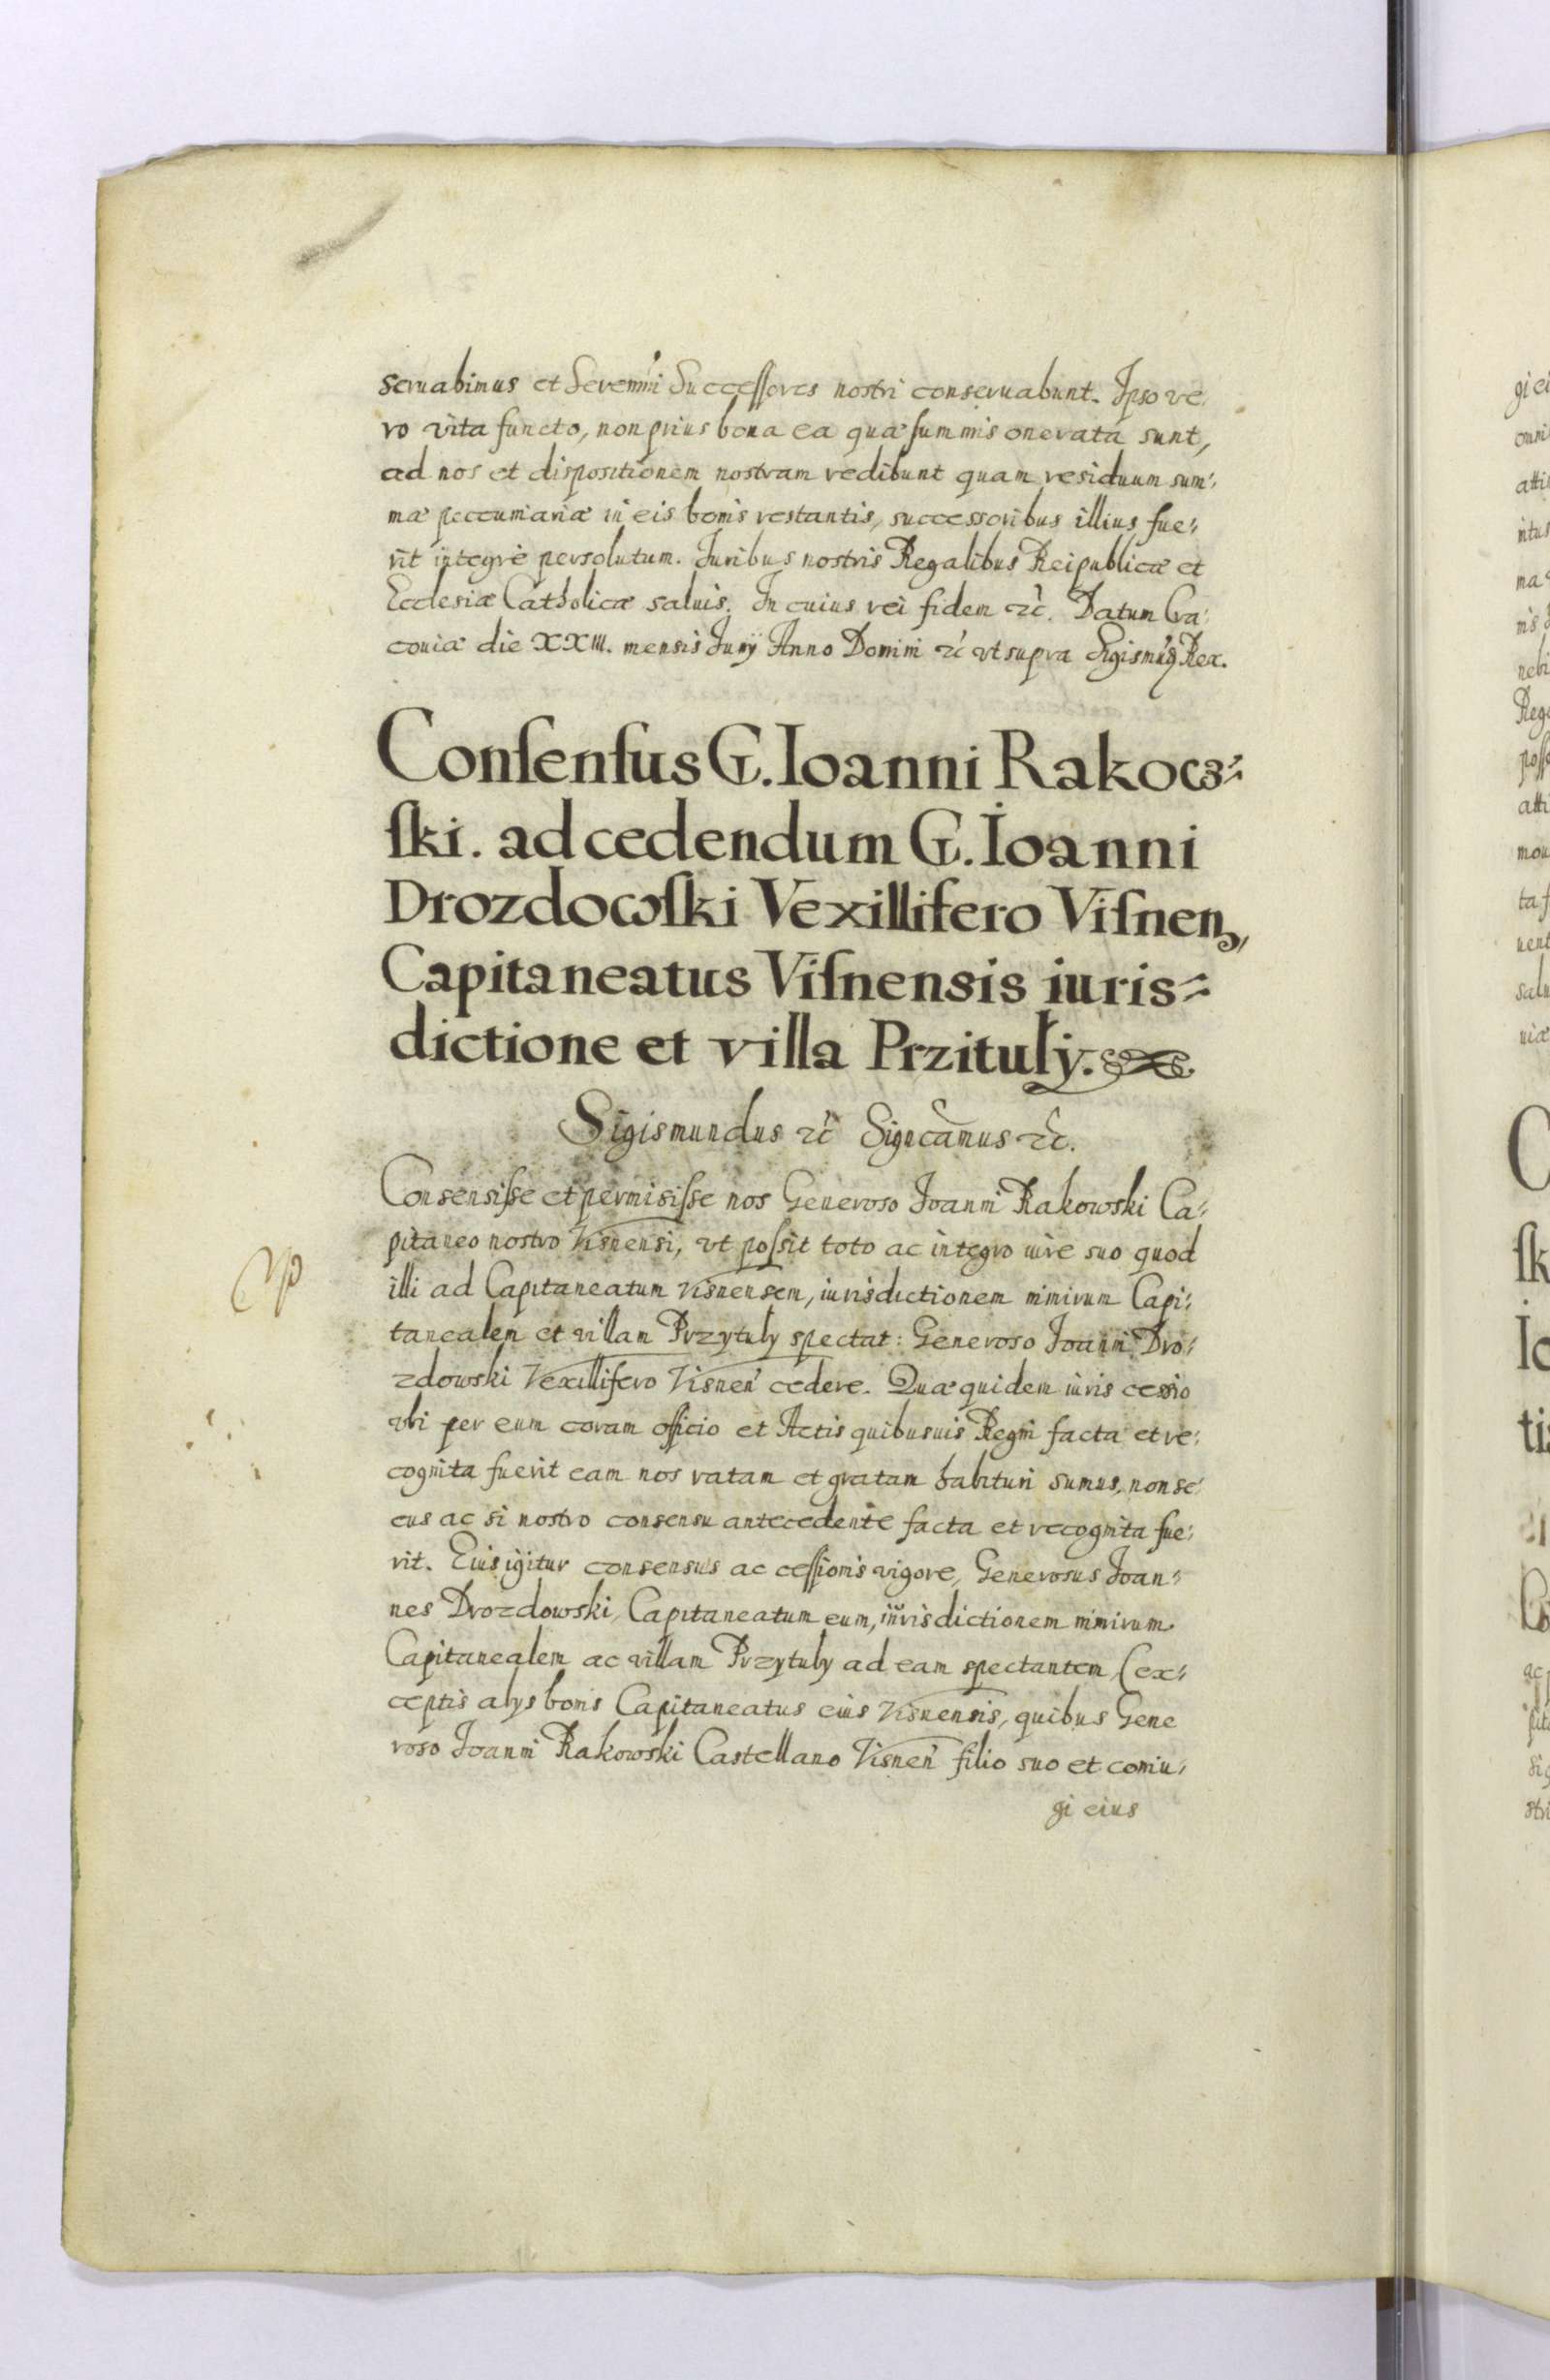 seruabimus et Serenmi Successores nostri conseruabunt. Ipso ve:
ro vita functo, non prius bona ea quæ summis onerata sunt,
ad nos et dispositionem nostram redibunt quam residuum sum:
mæ peccuniariæ in eis bonis restantis, successoribus illius fue:
rit integrè persolutum. Iuribus nostris Regalibus Reipublicæ et
Ecclesiæ Catholicæ saluis. In cuius rei fidem etc. Datum Cra:
couiæ die XXIII. mensis Iunÿ Anno Domini etc vt supra Sigismũs Rex.
Conſenſus G. Ioanni Rakow:
ſki. ad cedendum G. Ioanni
Drozdowſki Vexillifero Viſnen,
Capitaneatus Viſnensis iuris:
dictione et villa Przituły.
Sigismundus etc Signcamus etc.
Consensisse et permisisse nos Generoso Ioanni Rakowski Ca:
pitaneo nostro Visnensi, vt possit toto ac integro iure suo quod
illi ad Capitaneatum Visnensem, iurisdictionem nimirum Capi:
tanealem et villam Przytuly spectat: Generoso Ioanni Dro:
zdowski Vexillifero Visnen̄ cedere. Quæ quidem iuris cessio
vbi per eum coram officio et Actis quibusuis Regni facta et re:
cognita fuerit eam nos ratam et gratam habituri sumus, non se:
cus ac si nostro consensu antecedente facta et recognita fue:
rit. Eius igitur consensus ac cessionis vigore, Generosus Ioan:
nes Drozdowski, Capitaneatum eum, iurisdictionem nimirum
Capitanealem ac villam Przytuly ad eam spectantem (ex:
ceptis alys bonis Capitaneatus eius Visnensis, quibus Gene
roso Ioanni Rakowski Castellano Visnen̄ filio suo et coniu:
gi eius